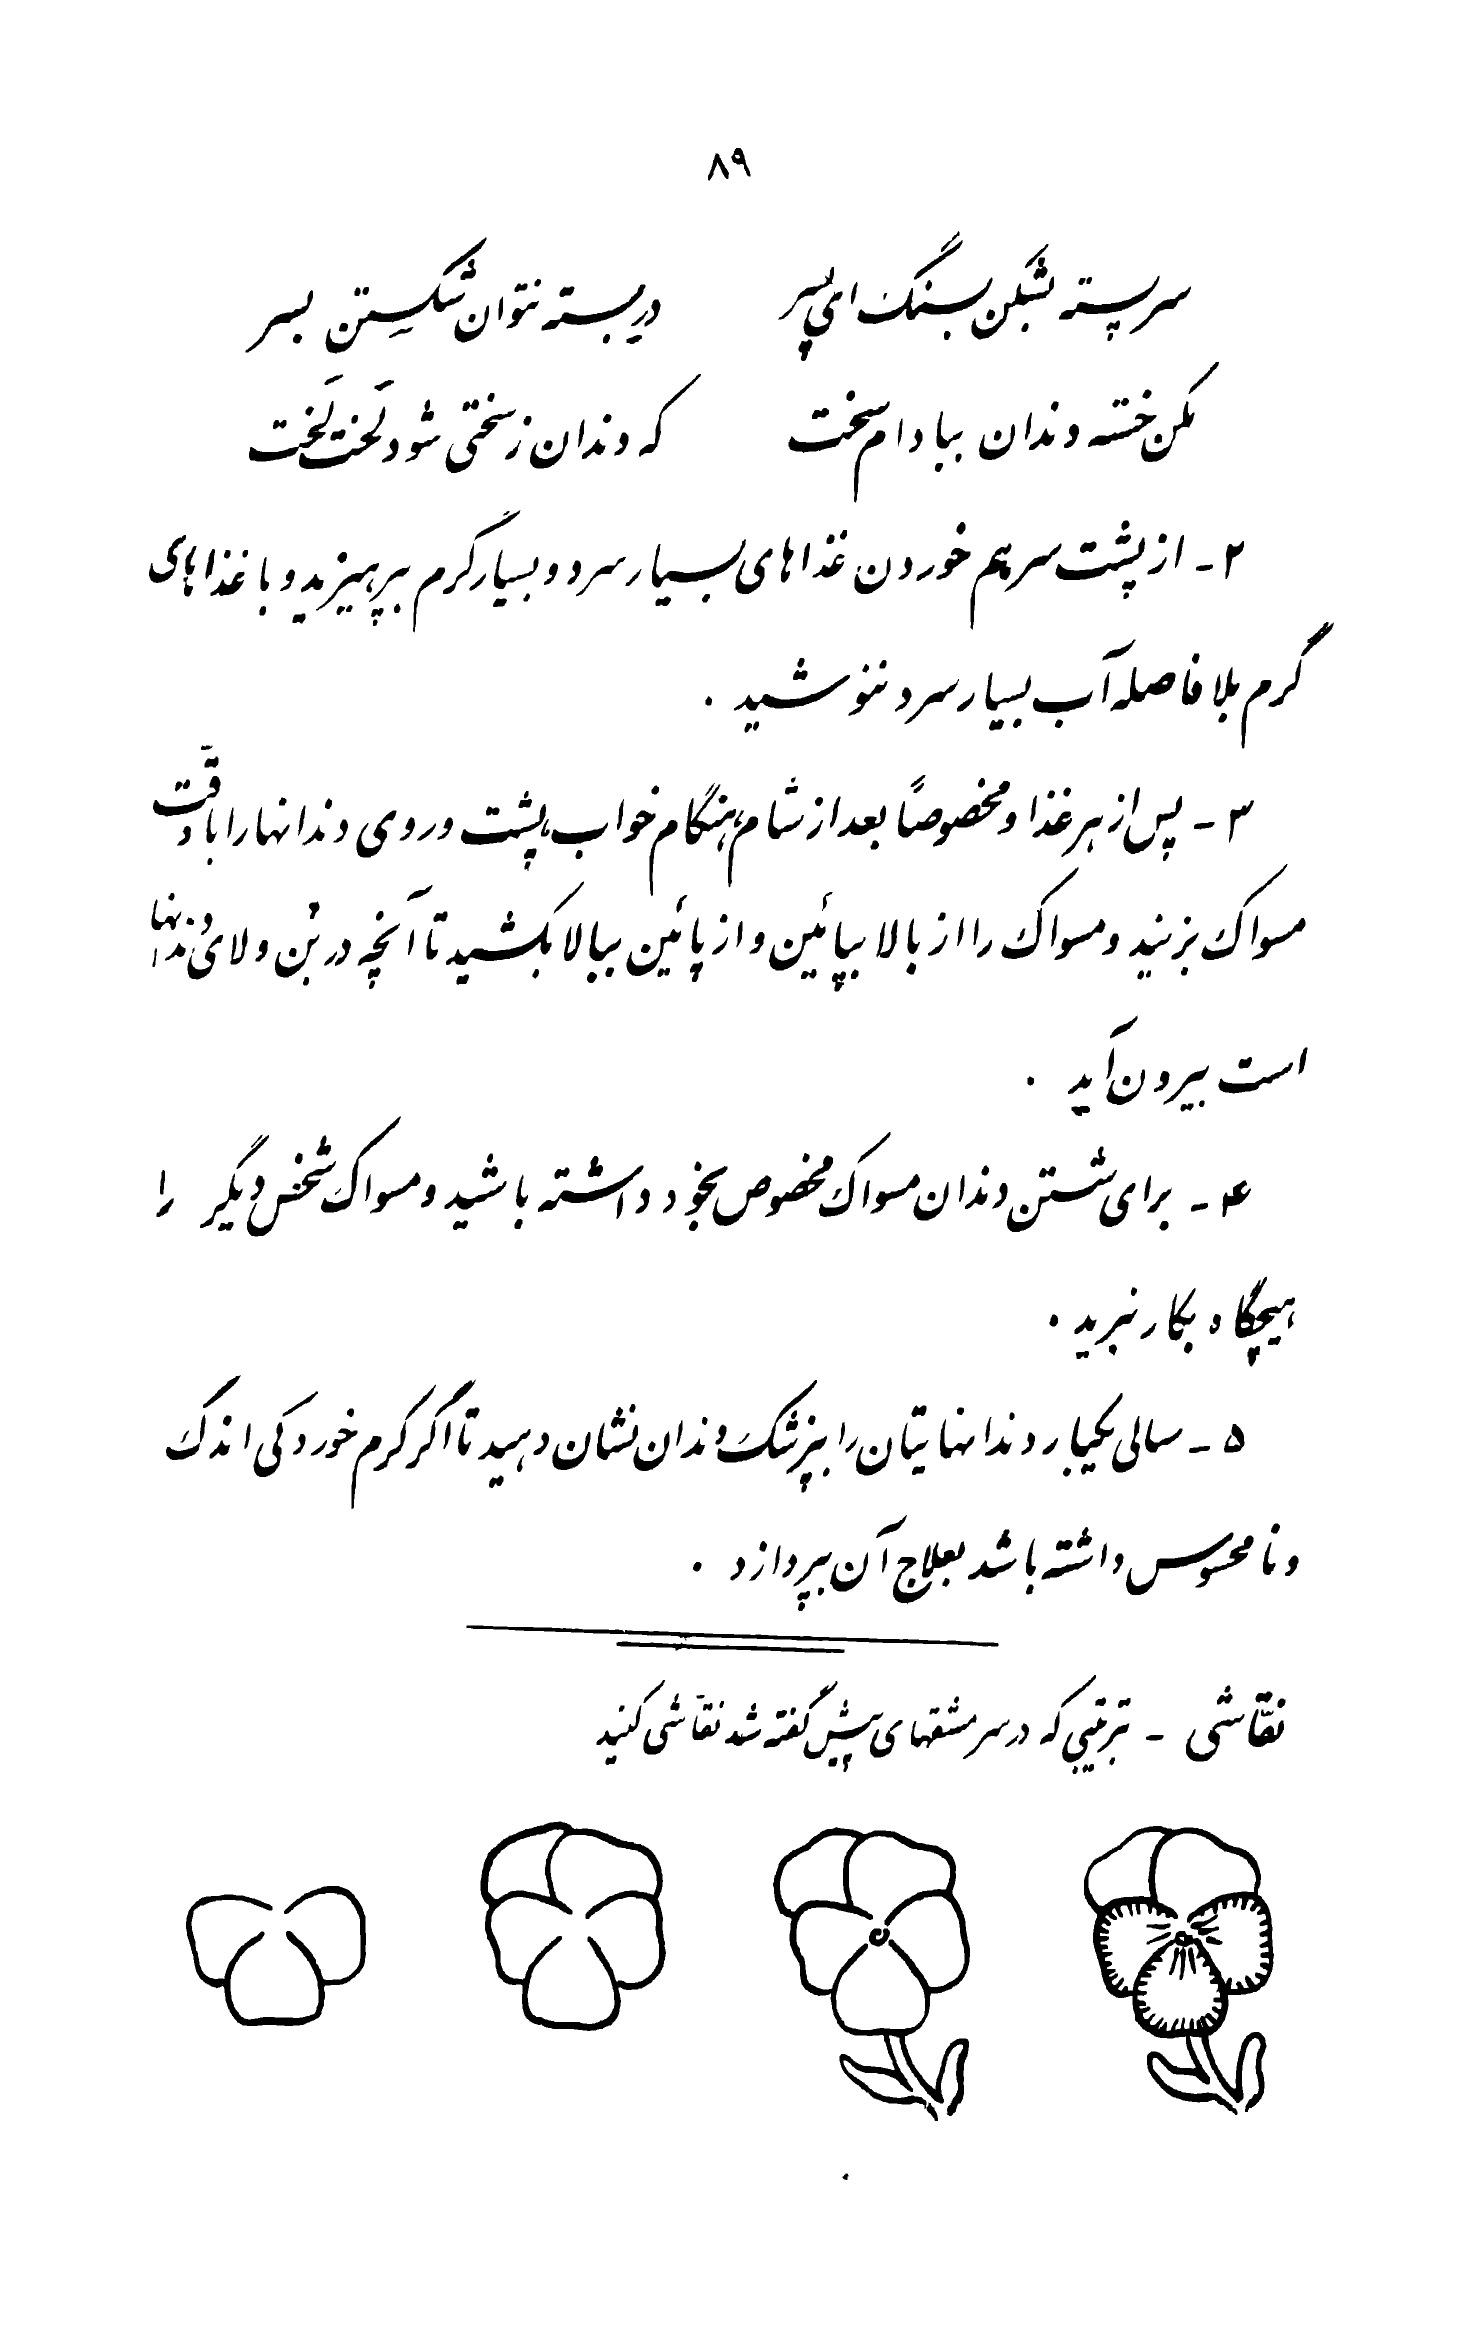 ۸۹
سر پسته بشکن بسنگ ای پسر در بسته نتوان شکستن بسر
مکن خسته دندان ببادام سخت که دندان ز سختی شود لَخت لَخت
۲ - از پشت سر هم خوردن غذاهای بسیار سرد و بسیار گرم بپرهیزید و با غذاهای
گرم بلافاصله آب بسیار سرد ننوشید .
۳ - پس از هر غذا و مخصوصاً بعد از شام، هنگام خواب، پشت و روی دندانها را با دقّت
مسواک بزنید و مسواک را از بالا بپائین و از پائین ببالا بکشید تا آنچه در بُن و لای دندانها
است بیرون آید .
۴ - برای شستن دندان مسواک مخصوص بخود داشته باشید و مسواک شخص دیگر را
هیچگاه بکار نبرید .
۵ - سالی یکبار دندانهایتان را بپزشک دندان نشان دهید تا اگر کرم خوردگی اندک
و نامحسوس داشته باشد بعلاج آن بپردازد .
نقّاشی - بترتیبی که در سرمشقهای پیش گفته شد نقّاشی کنید